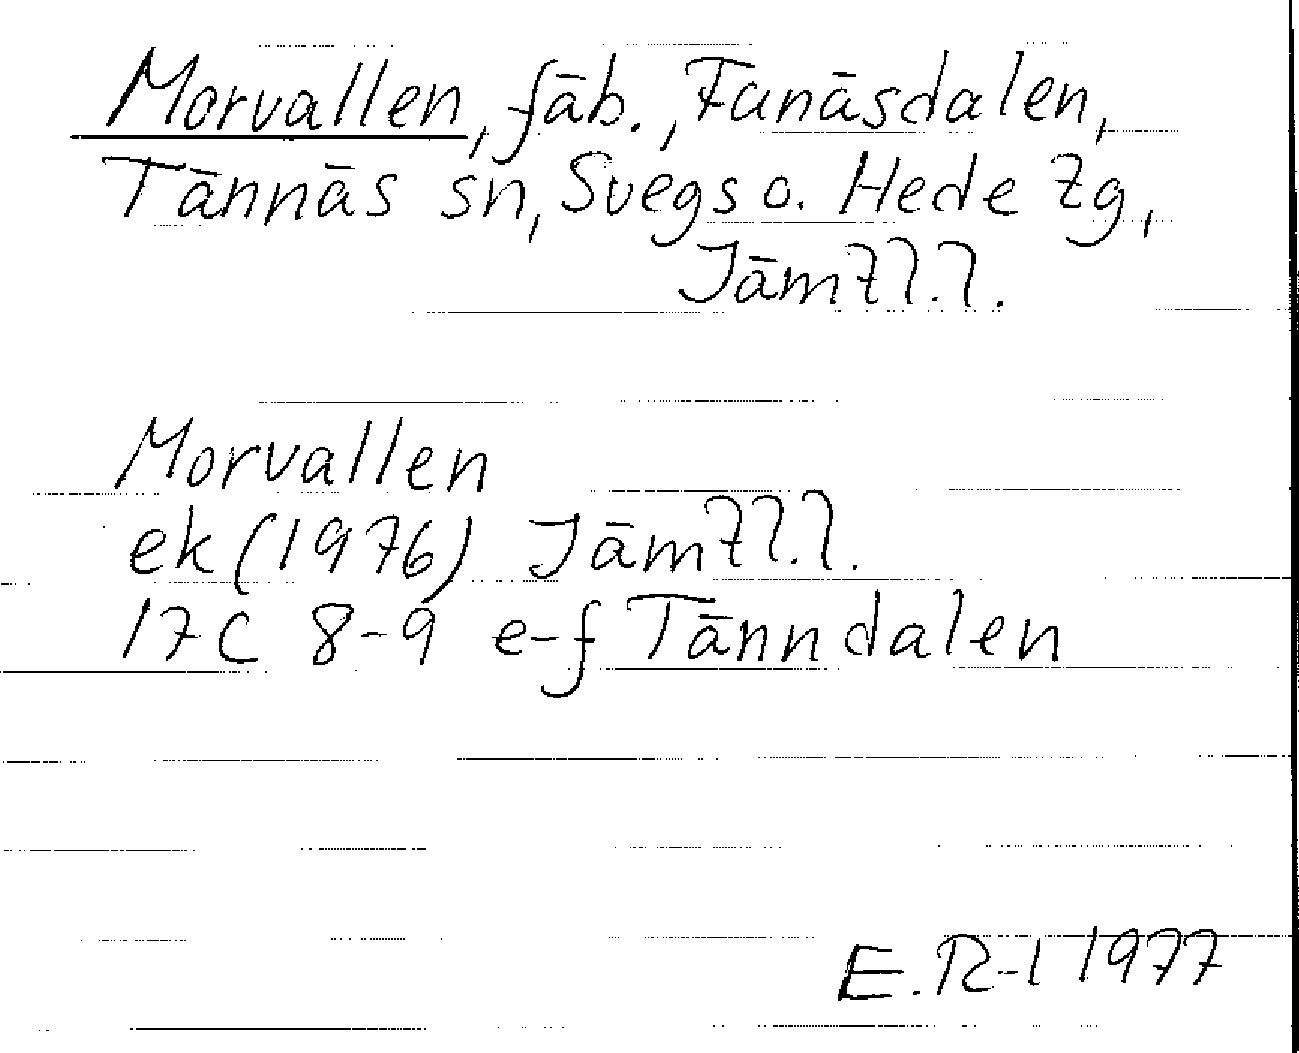 Morvallen, fāb., Funāsdalen,
Tānnās sn, Svegs o. Hede tg,
Jāmtl.l.
Morvallen
ek (1976) Jāmtl.l.
17C 8-9 e-f Tānndalen
E.R-l 1977